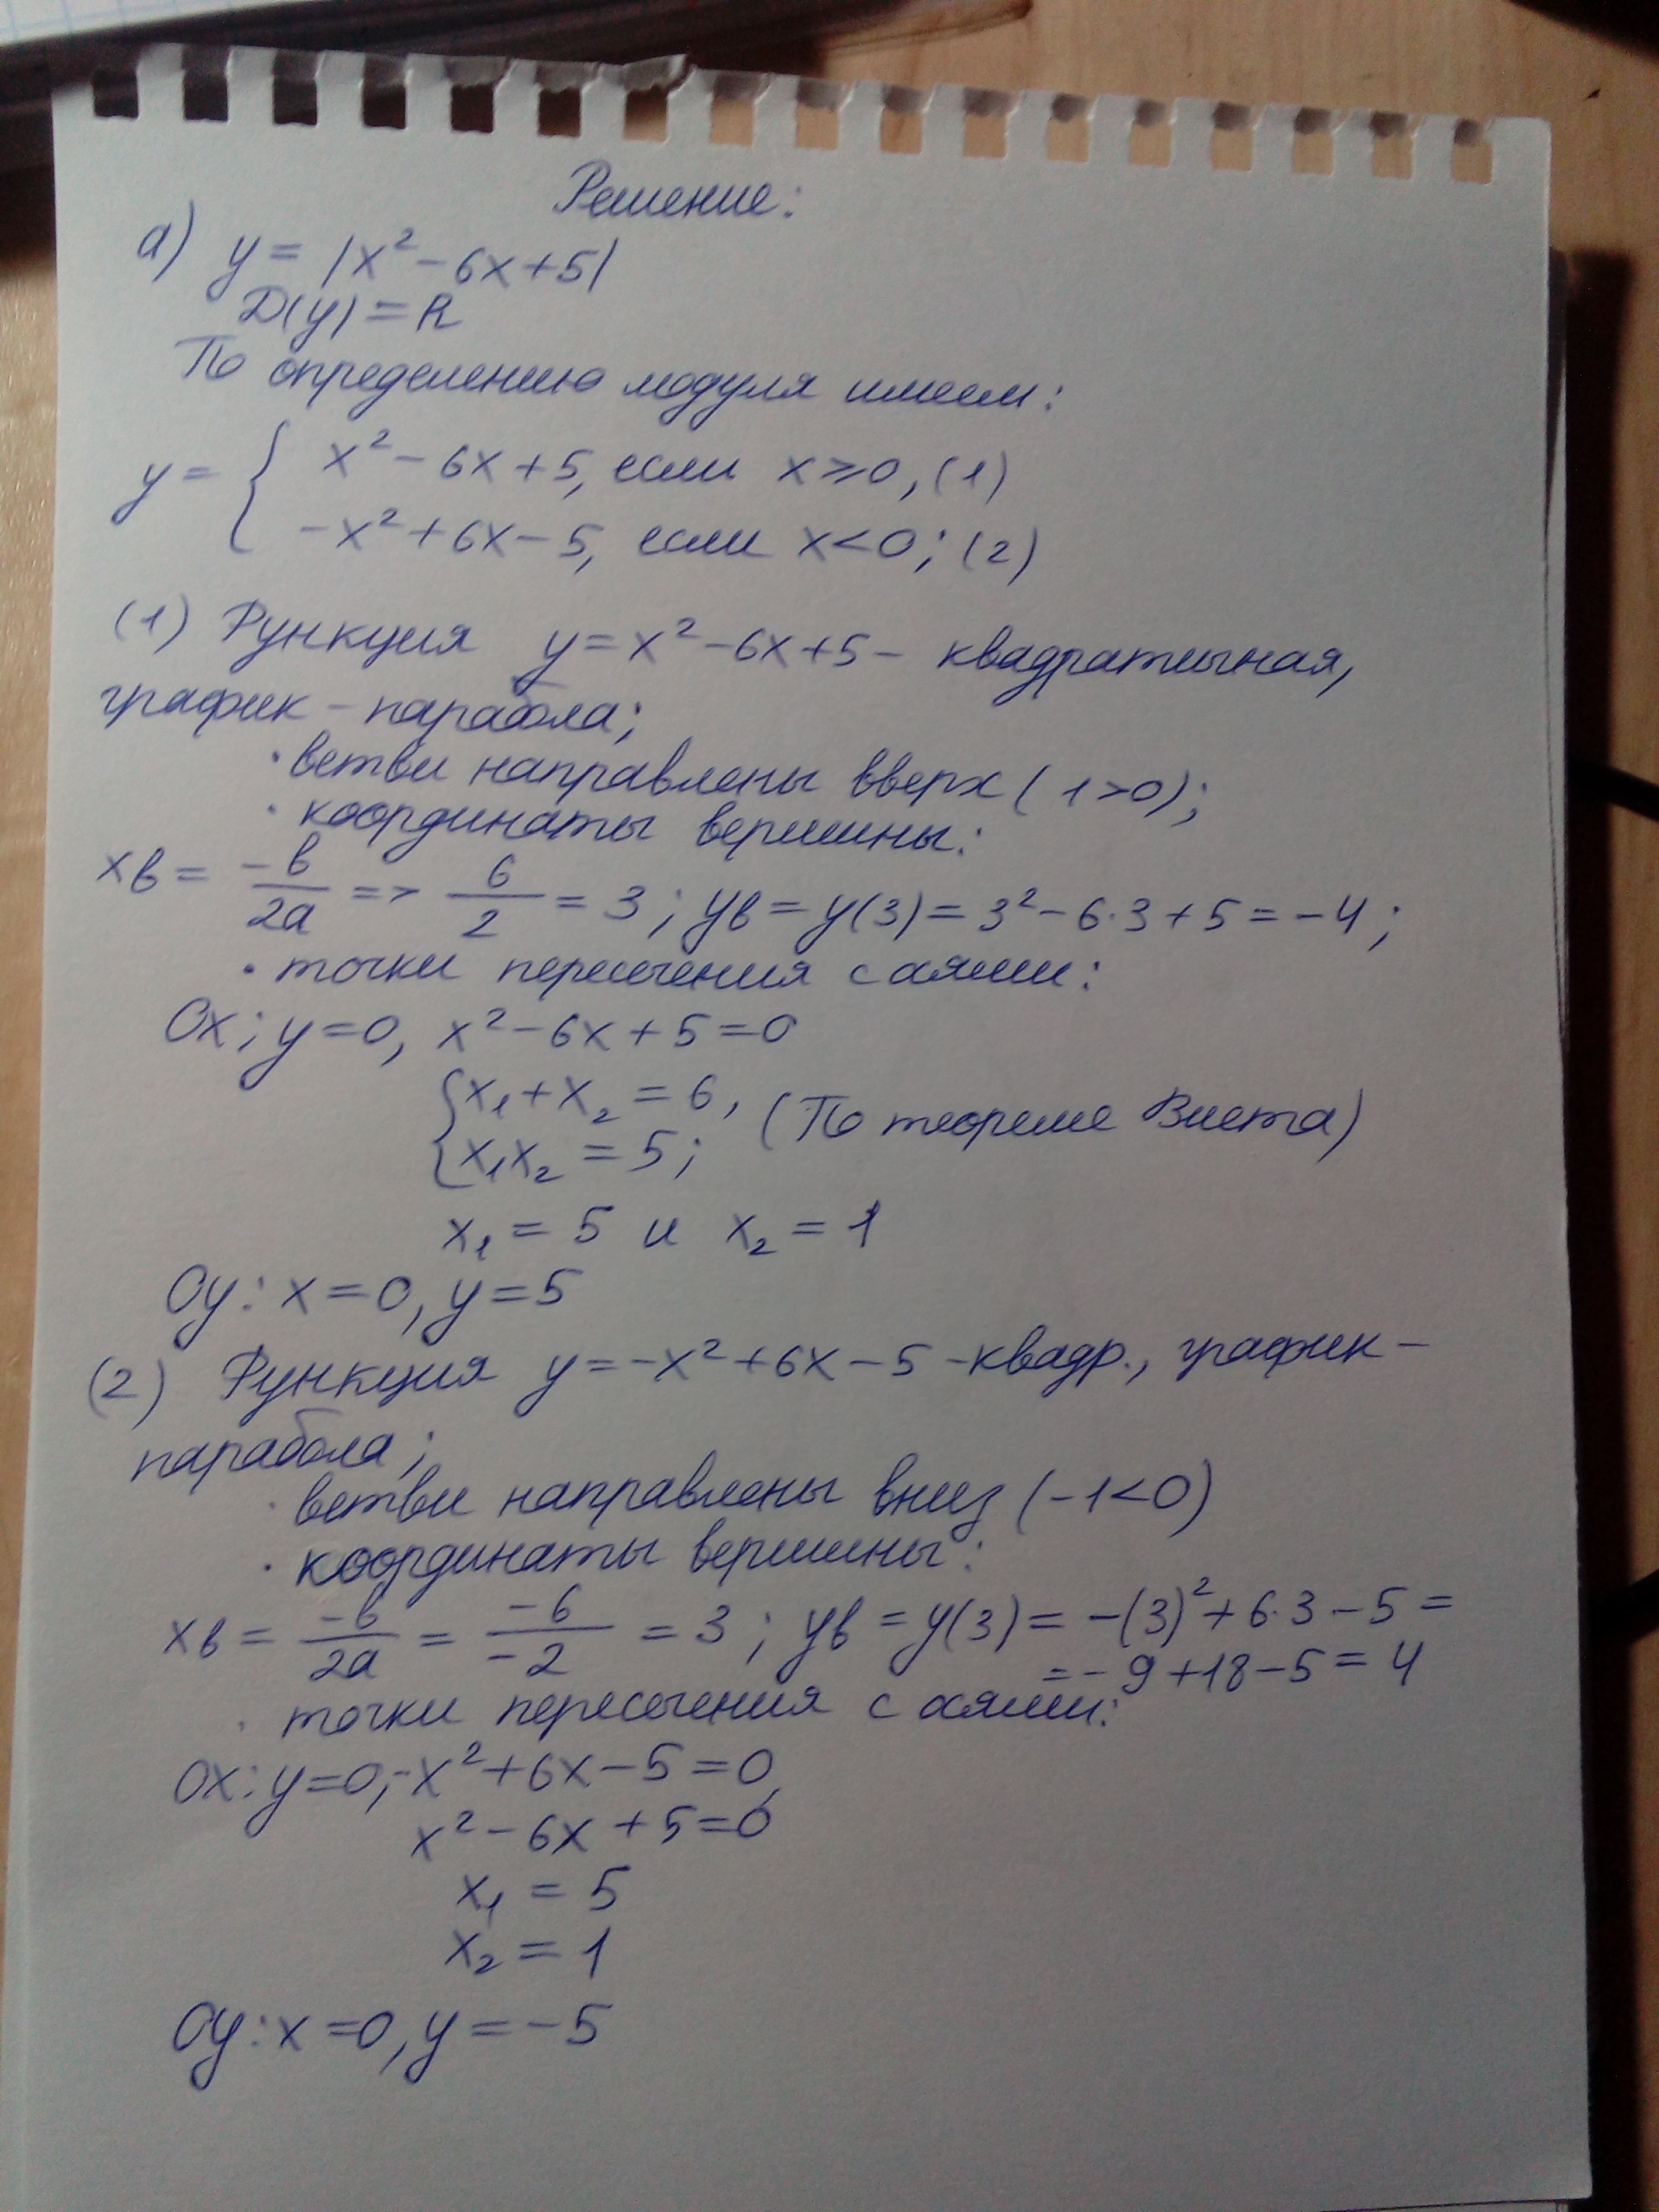 Решение:
а) y = |x² - 6x + 5|
D(y) = R
По определению модуля имеем:
y = { x² - 6x + 5, если x ≥ 0, (1)
-x² + 6x - 5, если x < 0; (2)
(1) Функция y = x² - 6x + 5 - квадратичная,
график - парабола;
· ветви направлены вверх (1>0);
· координаты вершины:
xв = -b/2a => 6/2 = 3; yв = y(3) = 3² - 6·3 + 5 = -4;
· точки пересечения с осями:
Ox; y=0, x² - 6x + 5 = 0
{ x₁ + x₂ = 6,
x₁x₂ = 5; (По теореме Виета)
x₁ = 5 и x₂ = 1
Oy: x = 0, y = 5
(2) Функция y = -x² + 6x - 5 - квадр., график -
парабола;
· ветви направлены вниз (-1<0)
· координаты вершины:
xв = -b/2a = -6/-2 = 3; yв = y(3) = -(3)² + 6·3 - 5 =
= -9 + 18 - 5 = 4
· точки пересечения с осями:
Ox: y=0, -x² + 6x - 5 = 0,
x² - 6x + 5 = 0
x₁ = 5
x₂ = 1
Oy: x = 0, y = -5